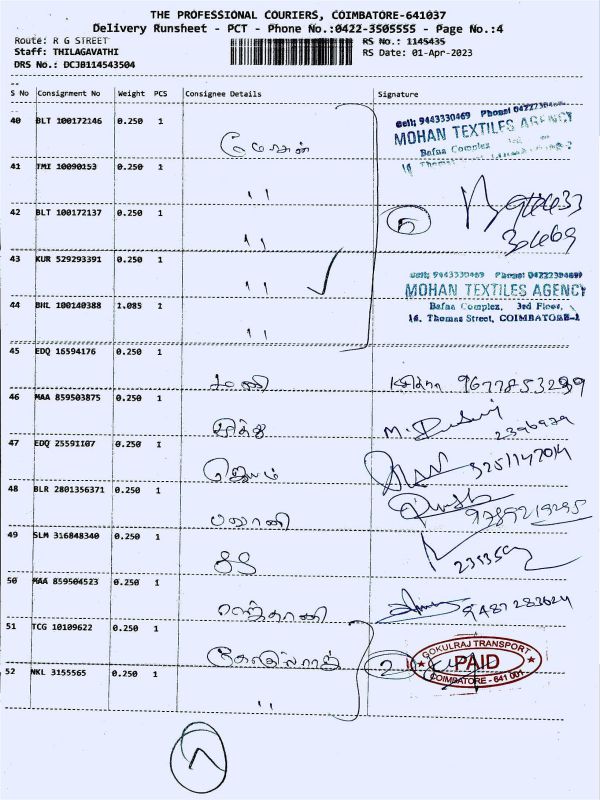 THE PROFESSIONAL COURIERS, COIMBATORE-641037
Delivery Runsheet - PCT - Phone No.:0422-3505555 - Page No.:4
Route: R G STREET
RS No.: 1145435
Staff: THILAGAVATHI
RS Date: 01-Apr-2023
DRS No.: DCJB114543504
S No Consignment No Weight PCS Consignee Details Signature
40 BLT 100172146 0.250 1
Cell: 9443330469 Phone: 04222304699
MOHAN TEXTILES AGENCY
Bafna Complex
மோகன்
41 TMI 10090153 0.250 1
"
42 BLT 100172137 0.250 1
5
"
43 KUR 529293391 0.250 1
"
Cell: 9443330469 Phone: 04222304699
MOHAN TEXTILES AGENCY
44 BHL 100140388 1.085 1
Bafna Complex, 3rd Floor,
16, Thomas Street, COIMBATORE-1
"
45 EDQ 16594176 0.250 1
மணி
9677853239
46 MAA 859503875 0.250 1
47 EDQ 25591107 0.250 1
48 BLR 2801356371 0.250 1
பழனி
9789219295
49 SLM 316848340 0.250 1
50 MAA 859504523 0.250 1
9487283624
51 TCG 10109622 0.250 1
2
GOKULRAJ TRANSPORT
PAID
COIMBATORE - 641 001
52 NKL 3155565 0.250 1
"
7